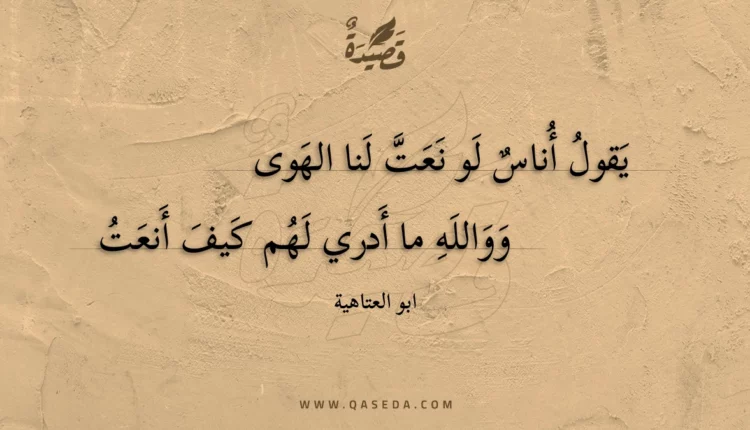 قَصِيدَةٌ
يَقولُ أُناسٌ لَو نَعَتَّ لَنا الهَوى
وَوَاللَهِ ما أَدري لَهُم كَيفَ أَنعَتُ
ابو العتاهية
WWW.QASEDA.COM